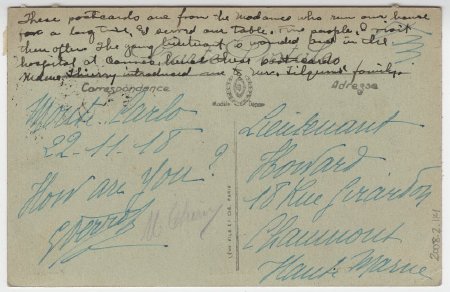 These postcards are from the madame who ran our house
for a long time, & served our table. Fine people, I visit
them often. The young lieutenant is wounded and in the
hospital at Cannes, postcards
Madame Thierry introduced me family.
Correspondance
Adresse
Modèle Déposé
Monte-Carlo
22-11-18
How are you?
M Thierry
LEVY FILS ET CIE, PARIS
Lieutenant
Howard
18 Rue Girardon
Chaumont
Haute Marne
2008.2.141